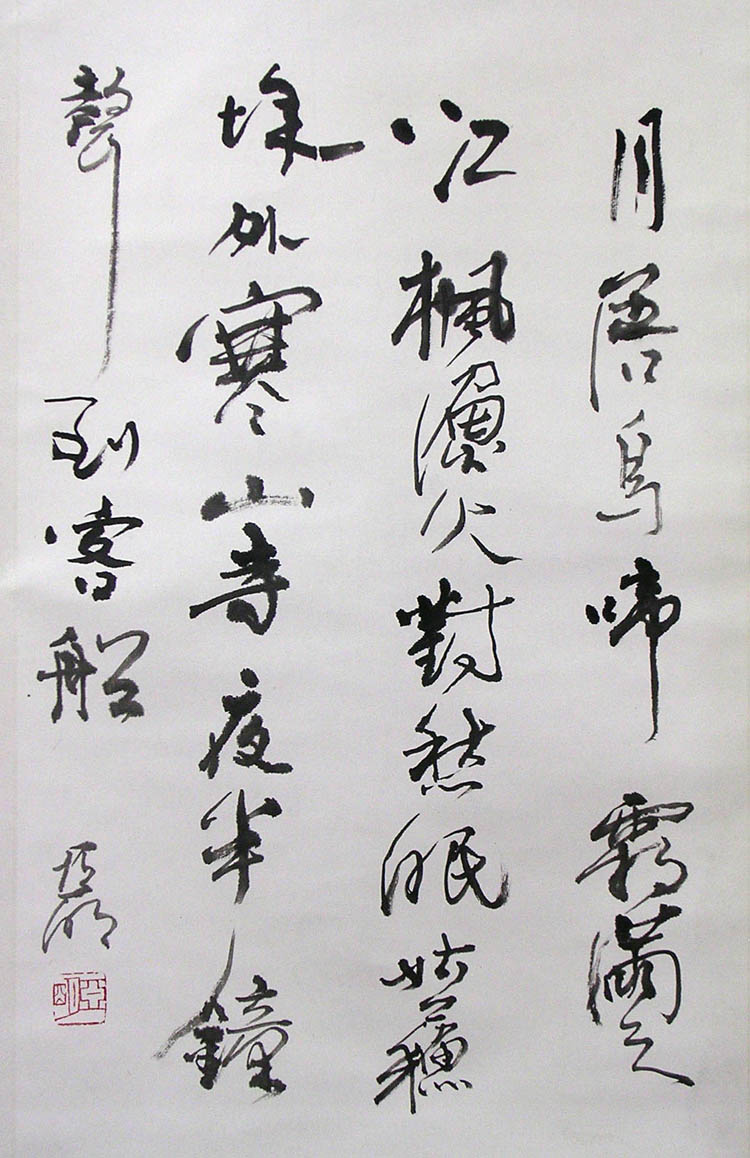 月落烏啼霜滿天
江楓漁火對愁眠姑蘇
城外寒山寺夜半鐘
聲到客船
亞明
亞明